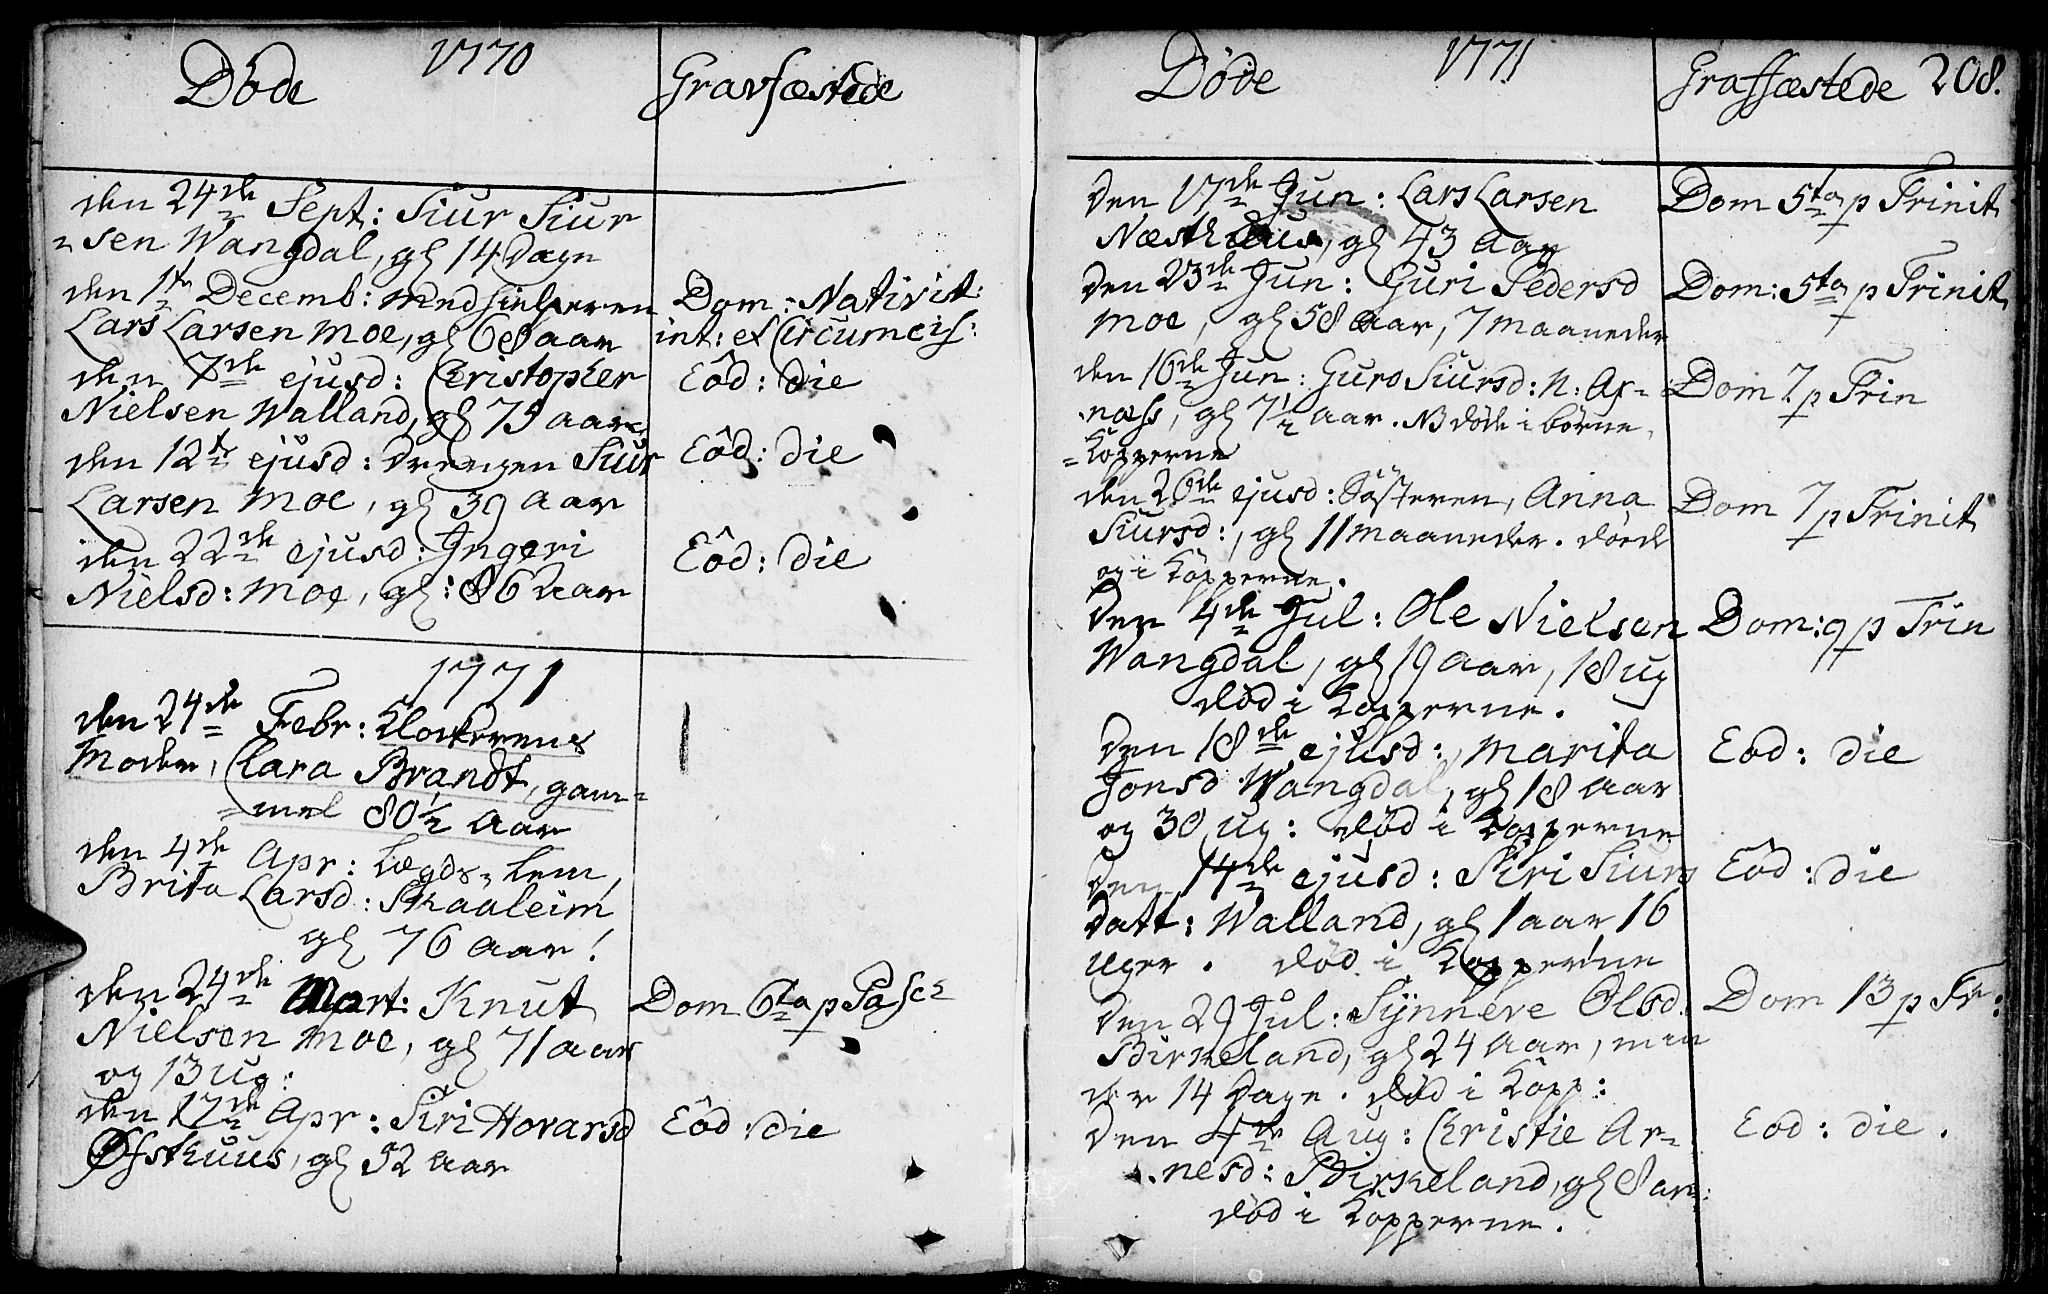 Døde 1770 Gravfæstede
den 24de Sept: Siur Siur
=sen Wangdal, gl 14 Dage
den 1te Decemb: medhielperen
Lars Larsen Moe, gl 68 aar
Dom: Nativit:
int: et Circumcis:
den 7de ejusd: Christopher
Nielsen Walland, gl 75 aar
Eôd: die
den 12te ejusd: Drengen Siur
Larsen Moe, gl 39 aar
Eôd: die
den 22de ejusd: Ingeri
Nielsd: Moe, gl: 86 Aar
Eôd: die
1771
den 24de Febr: Klockerens
Moder, Clara Brandt, gam=
=mel 80½ aar
den 4de Apr: Lægds=Lem,
Brita Larsd: Skaaleim
gl 76 aar!
den 24de Mart: Knut
Nielsen Moe, gl 71 aar
og 13 ug:
Dom 6ta p Pasc
den 17de Apr: Siri Hovarsd
Øfsthuus, gl 52 aar
Eôd: die
Døde 1771 Graffæstede 208.
Den 17de Jun: Lars Larsen
Næsthuus, gl 43 aar
Dom 5ta p Trinit
Den 23de Jun: Guri Pedersd
Moe, gl 58 aar, 7 maaneder
Dom: 5ta p Trinit
den 16de Jun: Guro Siursd: N: Ax=
næss, gl 7½ aar. NB døde i børne
=Kopperne
Dom 7 p Trin
den 26de ejusd: Søsteren, Anna
Siursd:, gl 11 maaneder. døede
og i Kopperne.
Dom 7 p Trinit
Den 4de Jul: Ole Nielsen
Wangdal, gl 19 aar, 18 ug
død i Kopperne.
Dom: 9 p Trin
Den 18de ejusd: Marita
Jonsd Wangdal, gl 18 aar
og 30 ug: død i Kopperne
Eod: die
Den 14de ejusd: Siri Siurs
Datt: Walland, gl 1 aar 16
Uger. død i Kopperne
Eôd: die
Den 29 Jul: Synneve Olsd
Birkeland, gl 24 aar, min
der 14 Dage. død i Kopp:
Dom 13 p Tr:
Den 4de Aug: Christie Ar=
nesd: Birkeland, gl 8 ar:
død i Kopperne.
Eod: die.